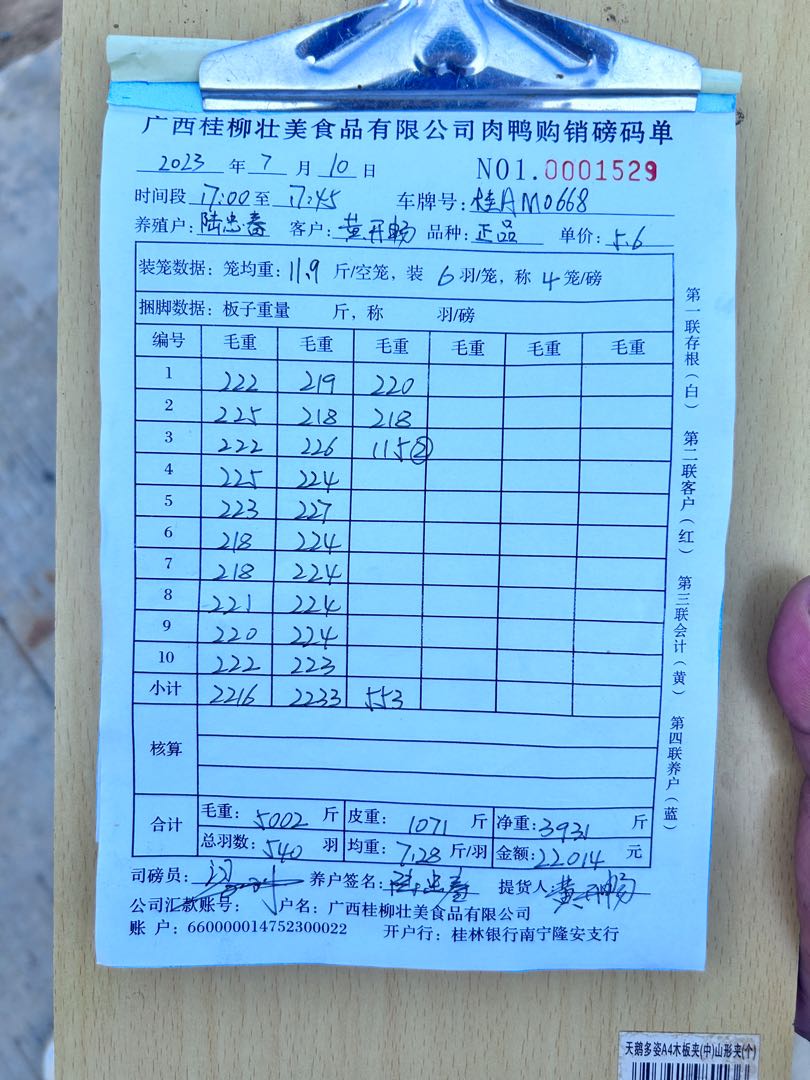 广西桂柳壮美食品有限公司肉鸭购销磅码单
2023 年 7 月 10 日 NO1.0001529
时间段 17:00 至 17:45 车牌号: 桂AM0668
养殖户: 陆忠春 客户: 黄开畅 品种: 正品 单价: 5.6
装笼数据: 笼均重: 11.9 斤/空笼, 装 6 羽/笼, 称 4 笼/磅
捆脚数据: 板子重量 斤, 称 羽/磅
编号 毛重 毛重 毛重 毛重 毛重 毛重
1 222 219 220
2 225 218 218
3 222 226 115②
4 225 224
5 223 227
6 218 224
7 218 224
8 221 224
9 220 224
10 222 223
小计 2216 2233 553
核算
合计 毛重: 5002 斤 皮重: 1071 斤 净重: 3931 斤
总羽数: 540 羽 均重: 7.28 斤/羽 金额: 22014 元
司磅员: 养户签名: 陆忠春 提货人: 黄开畅
公司汇款账号: 户名: 广西桂柳壮美食品有限公司
账 户: 660000014752300022 开户行: 桂林银行南宁隆安支行
第一联存根(白) 第二联客户(红) 第三联会计(黄) 第四联养户(蓝)
天鹅多姿A4木板夹(中)山形夹(个)